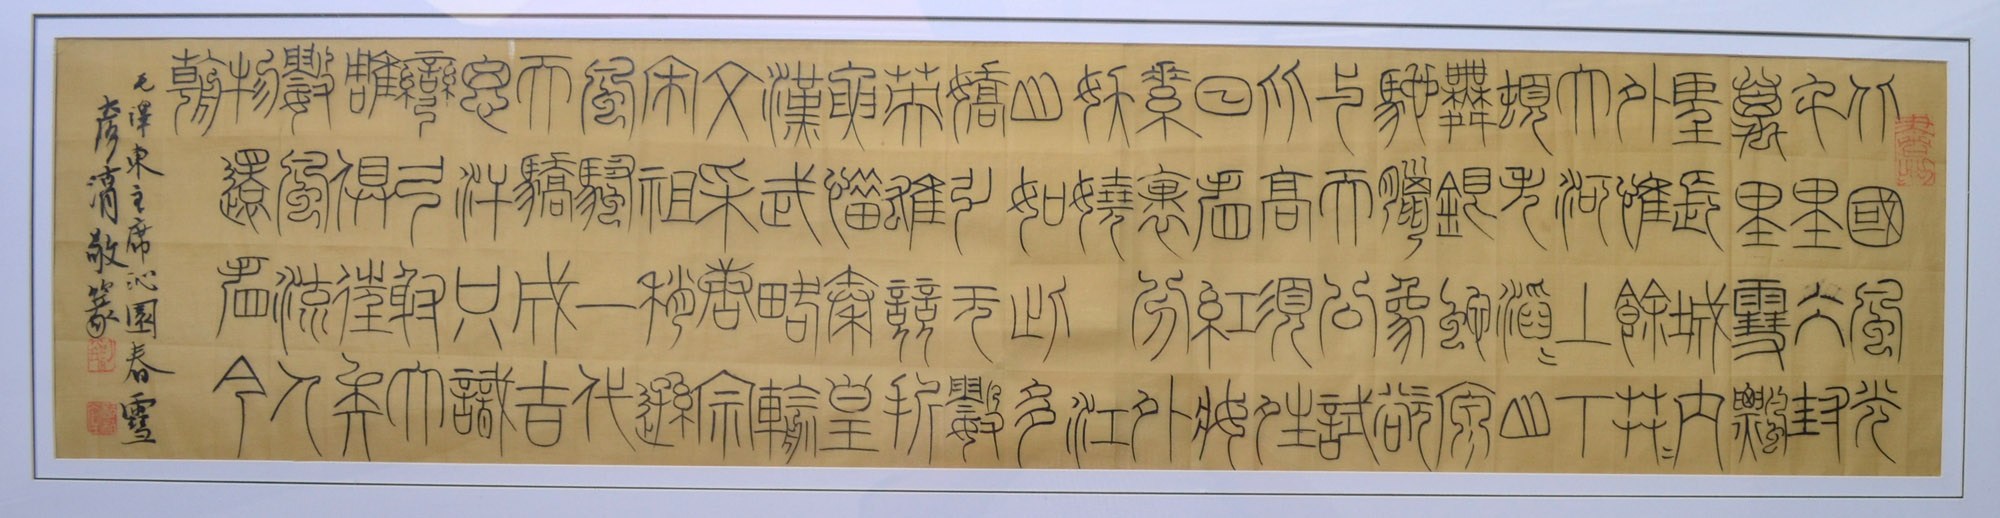 北國風光
千里冰封
萬里雪飄
望長城內
外惟餘莽〻
大河上下
頓失滔〻山
舞銀蛇原
馳臘象欲
與天公試
比高須晴
日看紅妝
素裹分外
妖嬈江
山如此多
嬌引无數
英雄競折
腰惜秦皇
漢武略輸
文采唐宗
宋祖稍遜
風騷一代
天驕成吉
思汗只識
彎弓射大
雕俱往矣
數風流人
物還看今
朝
毛澤東主席沁園春雪
敬篆